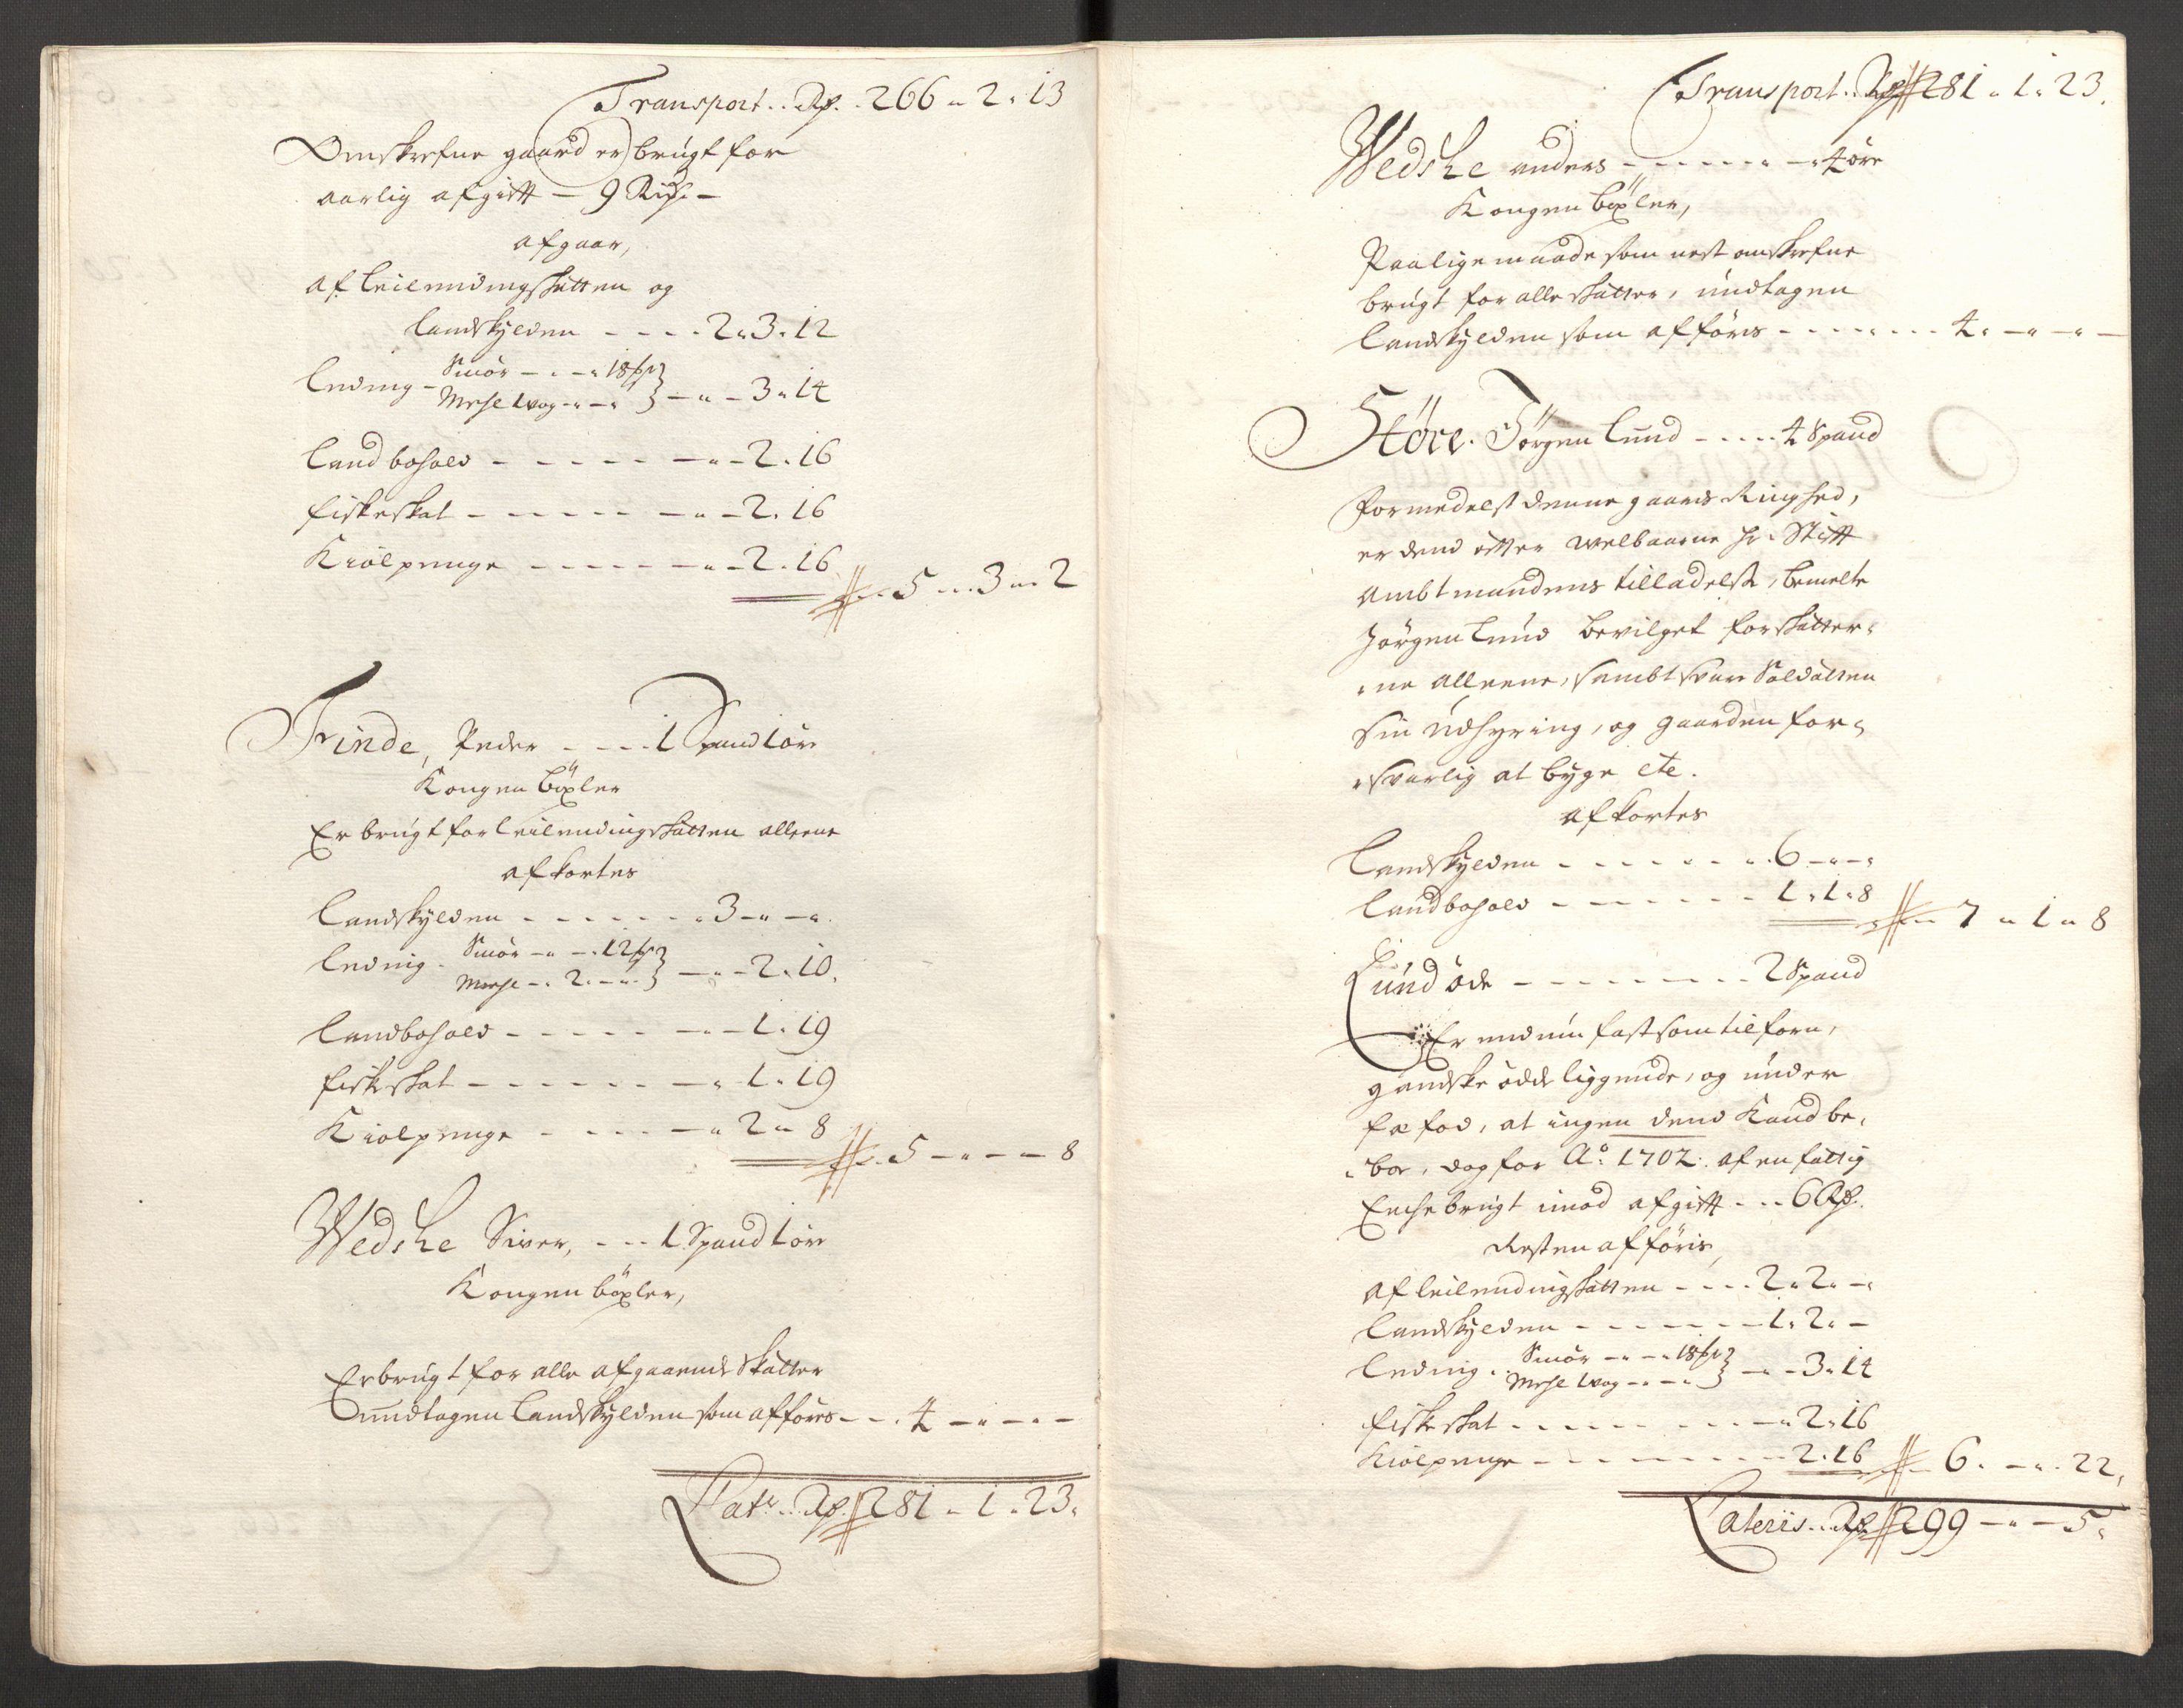 Transport.. Rd. 266 - 2 - 13
Omskrefne gaard er brugt for
aarlig afgift — 9 Rixd. —
afgaar,
af leilendingsskatten og
landskylden - - - - 2 - 3 - 12
leding - Smör - - - 18 sk
Mehl 1 vog - - - } - - - 3 - 14
landbohold - - - - - - - 2 - 16
fiskeskat - - - - - - - 2 - 16
Kiölpenge - - - - - - - 2 - 16
5 - 3 - 2
Trinde, Peder - - - 1 Spand 1 öre
Kongen böxler
Er brugt for leilendingsskatten alleene
afkortes
landskylden - - - - - - 3 - - -
leding - Smör - - - 12 sk
Meehl - 2 - - } - - - 2 - 10.
landbohold - - - - - - - 1 - 19
fiskeskat - - - - - - - 1 - 19
Kiolpenge - - - - - - 2 - 8
5 - - - 8
Wedske Siver, - - - 1 Spand 1 öre
Kongen böxler,
Er brugt for alle afgaaende Skatter
undtagen landskylden som afföres - - - 4 - - - -
Lat: Rd. 281 - 1 - 23.
Transport.. Rd 281 - 1 - 23.
Wedske anders - - - - - - - 4 öre
Kongen böxler,
Paa lige maade som nest omskrefne
brugt for alle skatter, undtagen
landskylden som afföris - - - - - - 4 - - - -
Störe. Jörgen Lund - - - - 4 Spand
formedelst denne gaards Ringhed,
er dend efter welbaarne Hr. Stift
Ambtmandens tilladelse, bemelte
Jörgen Lund bevilget for skatter-
-ne alleene, sambt svare Soldatten
sin Udhyring, og gaarden for-
-svarlig at byge etc.
afkortes
landskylden - - - - - - - 6 - - -
landbohold - - - - - - - 1 - 1 - 8
7 - 1 - 8
Lund öde - - - - - - - - 2 Spand
Er end nu fast som tilforn,
gandske öde liggende, og under
fæfod, at ingen dend Kand be-
-boe, dog for Ao: 1702: af en fattig
Enche brugt imod afgift - - - 6 Rd.
Resten afföris,
af leilendingsskatten - - - - 2 - 2 - -
landskylden - - - - - - - 1 - 2 - -
leding - Smör - - - 18 sk
Mehl 1 vog - - - } - - - 3 - 14
fiskeskat - - - - - - - - 2 - 16
Kiolpenge - - - - - - - - 2 - 16
6 - - - 22,
Lateris.. Rd 299 - - - 5.